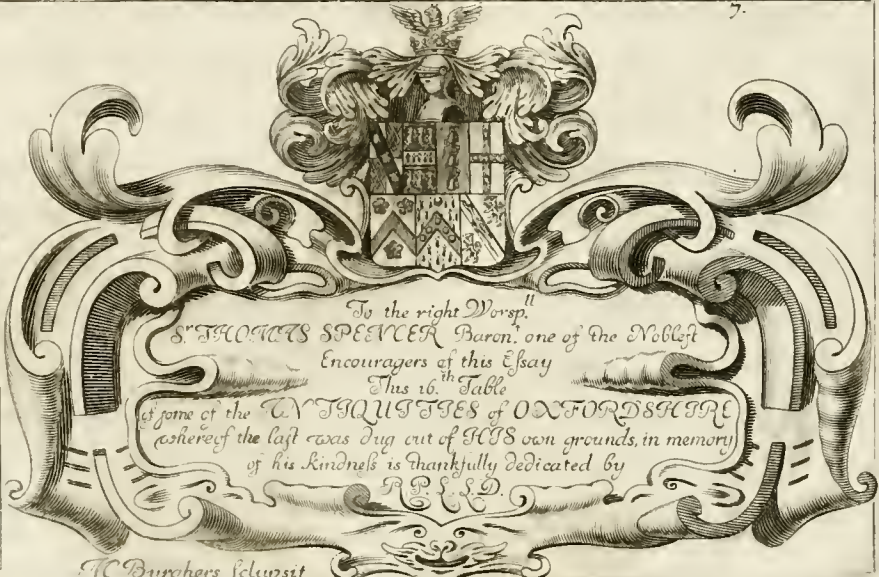 7.
To the right Worsp.ll
Sr. THOMAS SPENCER Baron.t one of the Noblest
Encouragers of this Essay
This 16.th Table
of some of the ANTIQUITIES of OXFORDSHIRE
whereof the last was dug out of HIS own grounds, in memory
of his kindness is thankfully dedicated by
R.P.L.L.D.
M Burghers sculpsit